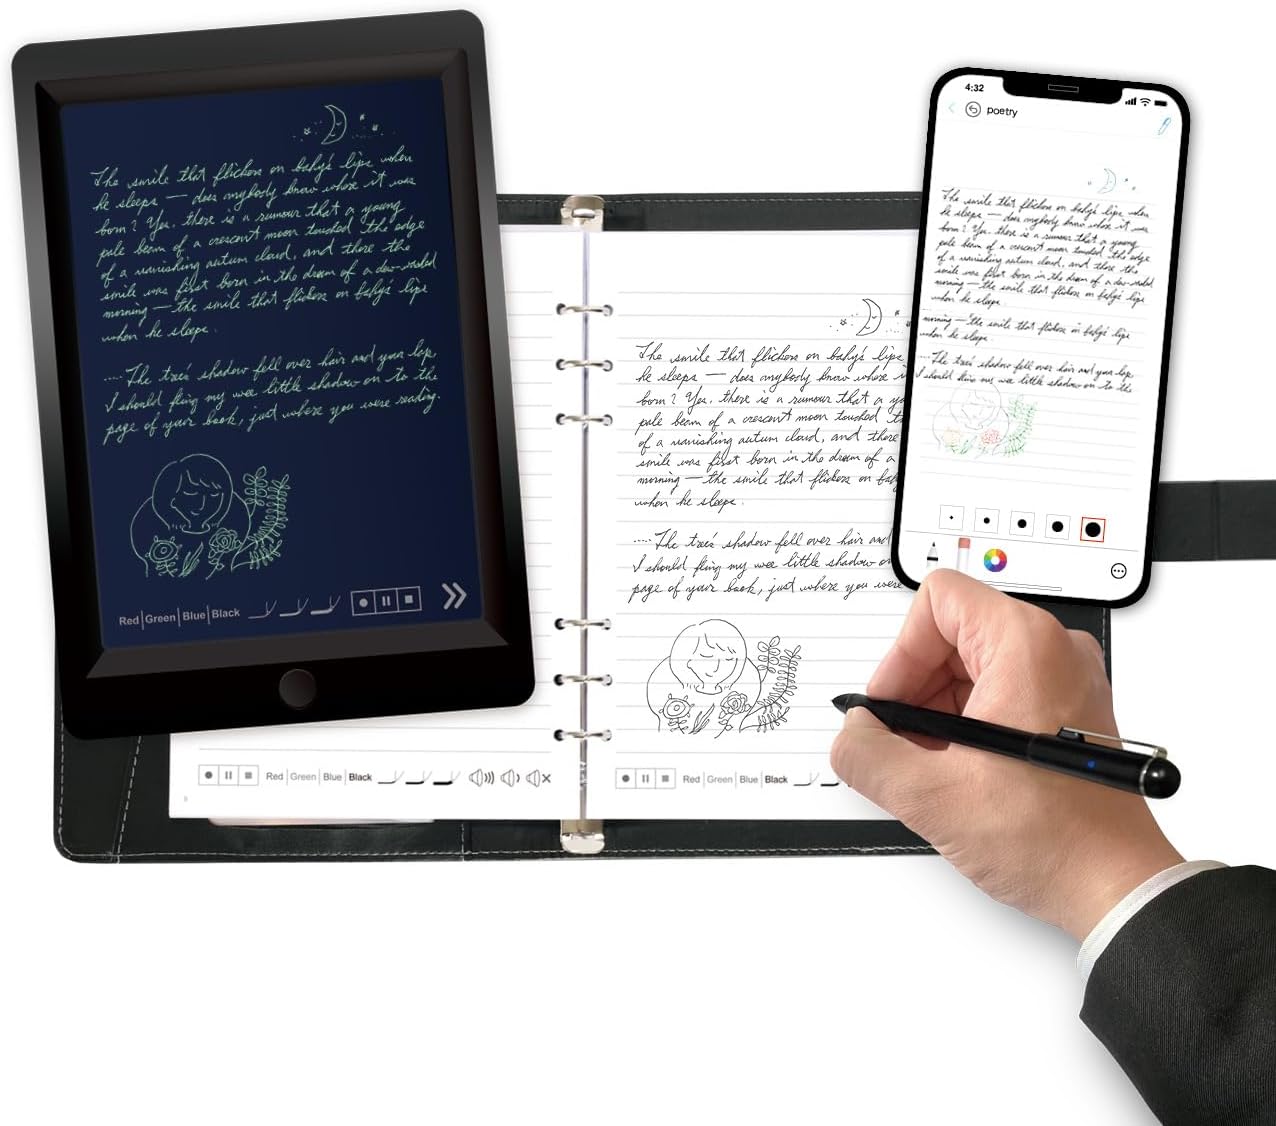 The smile that flickers on baby's lips when
he sleeps — does anybody know where it was
born? Yes, there is a rumour that a young
pale beam of a crescent moon touched the edge
of a vanishing autum cloud, and there the
smile was first born in the dream of a dew-washed
morning — the smile that flickers on baby's lips
when he sleeps.
....The tree's shadow fell over hair and your lap
I should fling my wee little shadow on to the
page of your book, just where you were reading.
Red | Green | Blue | Black
The smile that flickers on baby's lips
he sleeps — does anybody know where i
born? Yes, there is a rumour that a yo
pale beam of a crescent moon touched t
of a vanishing autum cloud, and there
smile was first born in the dream of a
morning — the smile that flickers on bab
when he sleeps.
....The tree's shadow fell over hair and
I should fling my wee little shadow on
page of your book, just where you were
Red | Green | Blue | Black
Red | Green | Blue | Black
4:32
poetry
The smile that flickers on baby's lips when
he sleeps — does anybody know where it was
born? Yes, there is a rumour that a young
pale beam of a crescent moon touched the edge
of a vanishing autum cloud, and there the
smile was first born in the dream of a dew-washed
morning — the smile that flickers on baby's lips
when he sleeps.
morning — the smile that flickers on baby's lips
when he sleeps.
....The tree's shadow fell over hair and your lap
I should fling my wee little shadow on to the